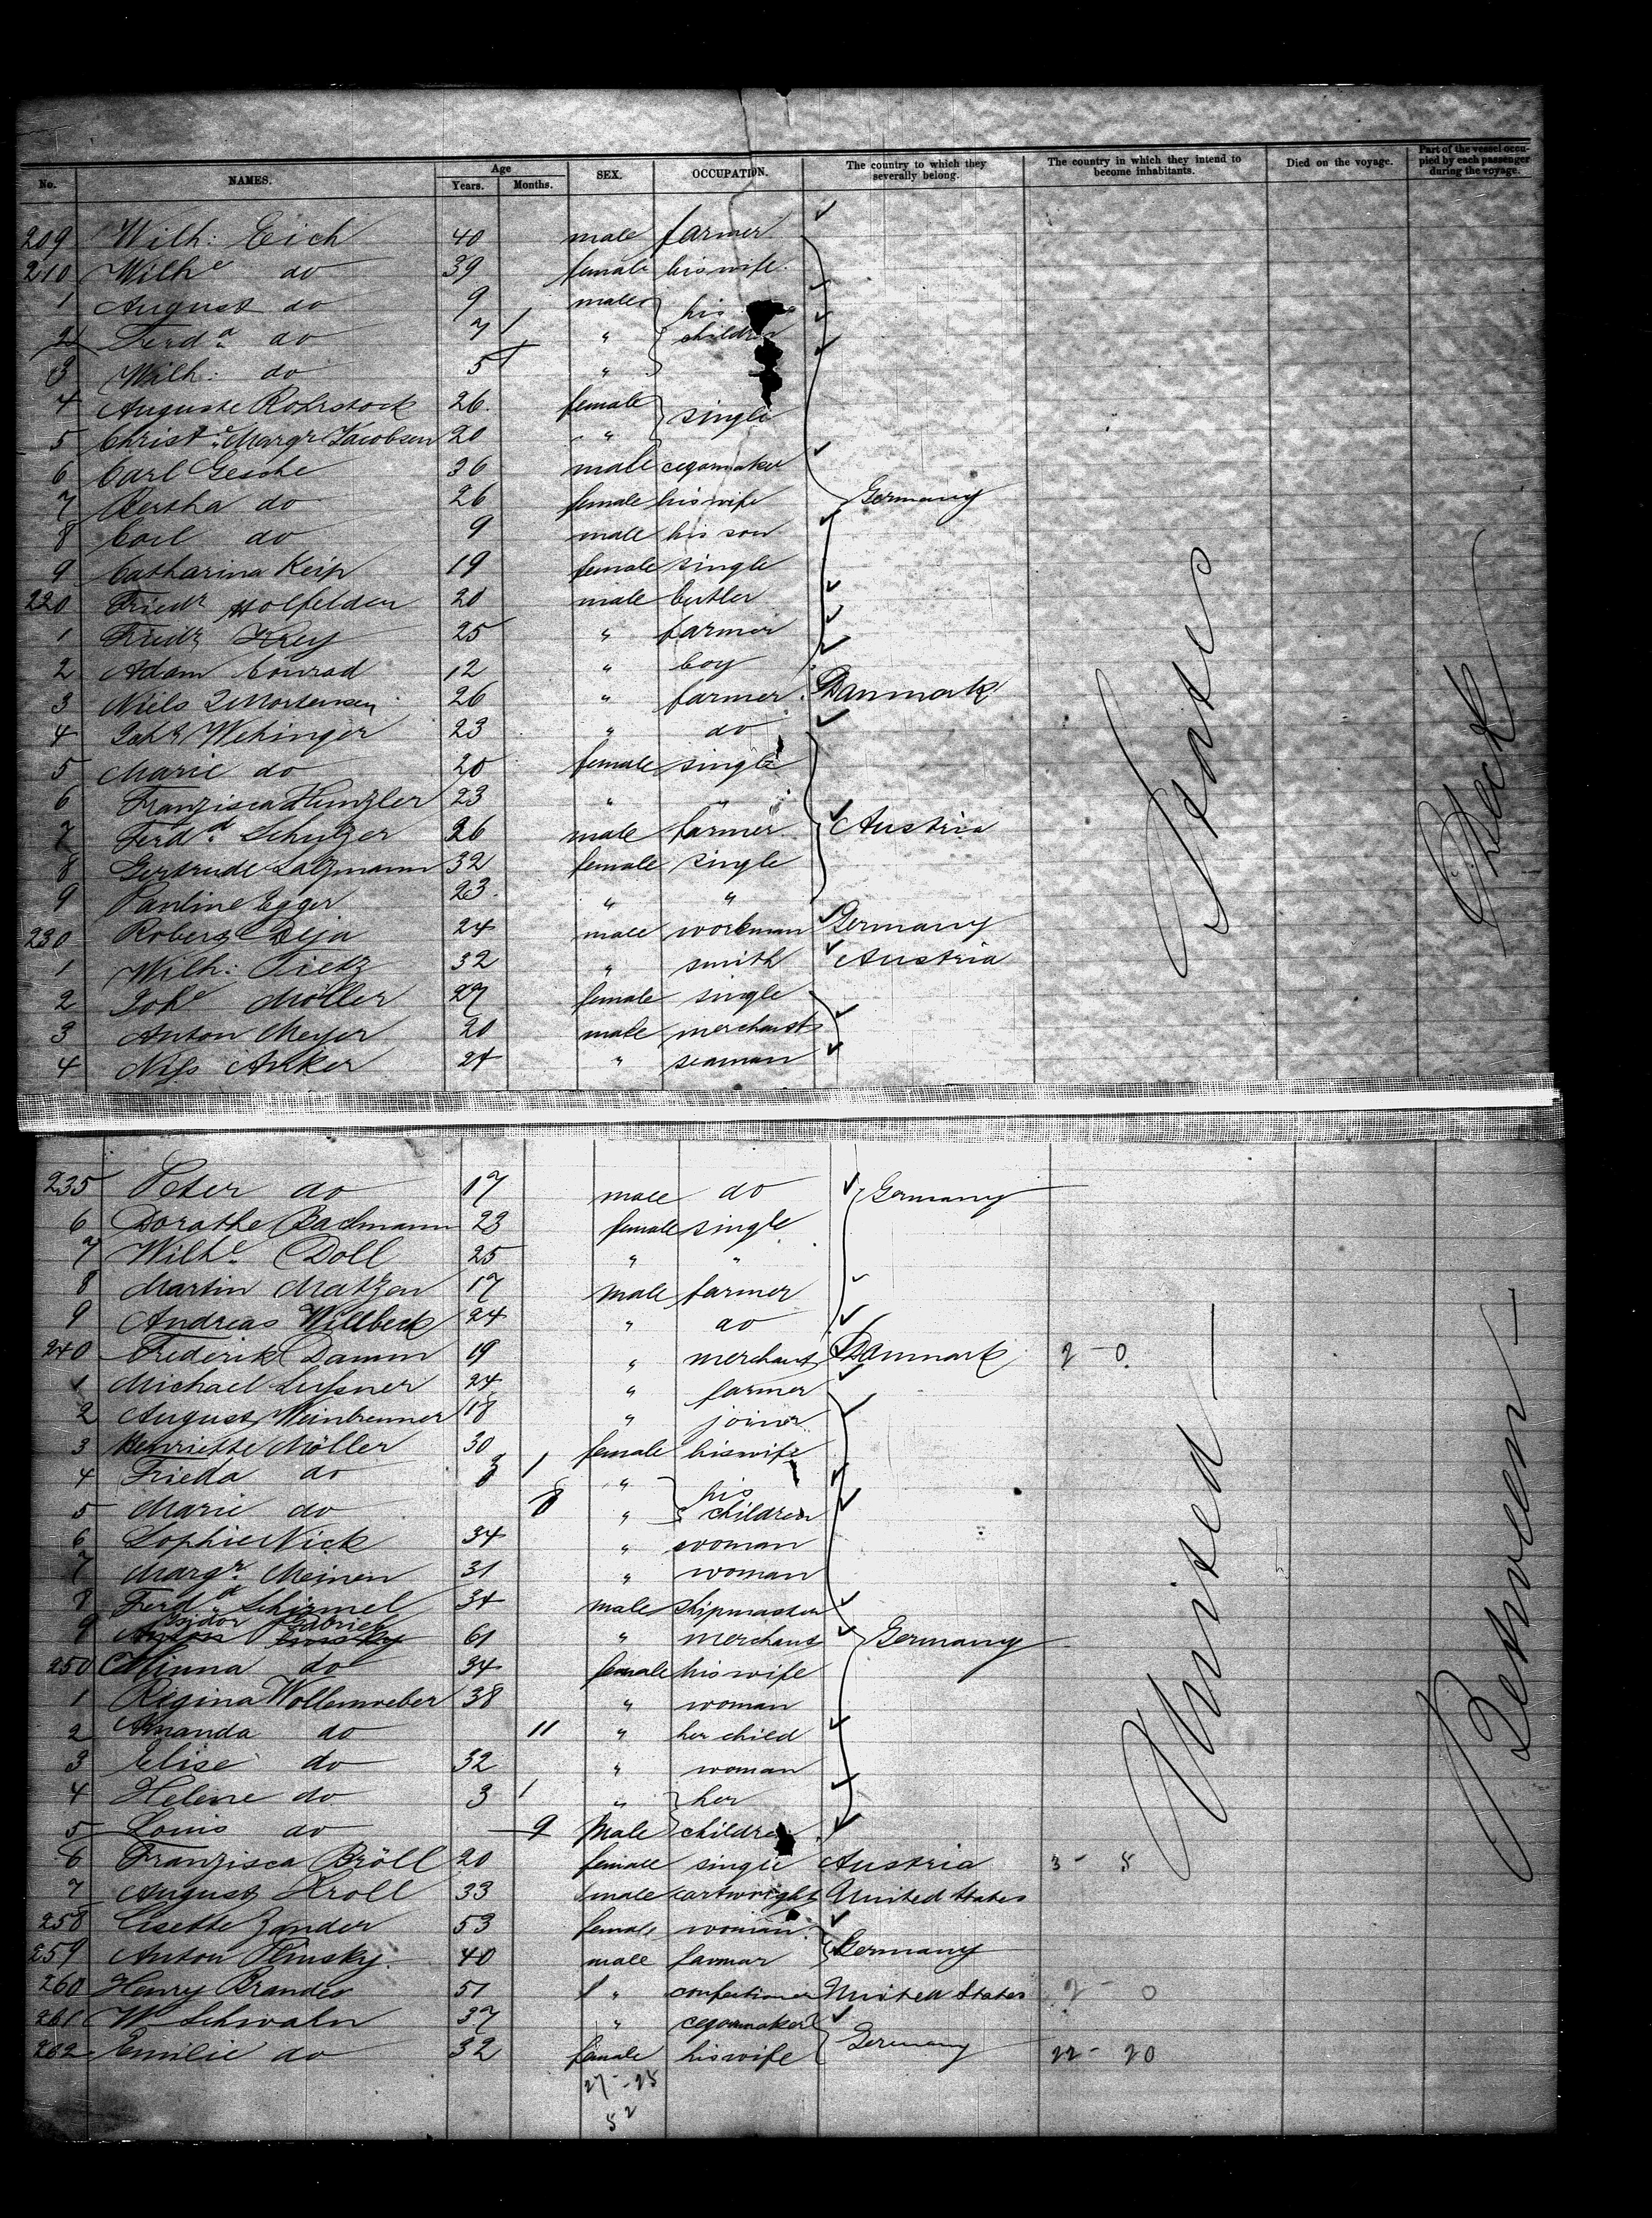 No. NAMES. Age Years. Months. SEX. OCCUPATION. The country to which they severally belong. The country in which they intend to become inhabitants. Died on the voyage. Part of the vessel occupied by each passenger during the voyage.
209 Wilh: Eich 40 male farmer
210 Wilhe do 39 female his wife
1 August do 9 male his
2 Ferdd do 7 " children
3 Wilh: do 5 "
4 Auguste Rohrstock 26 female single
5 Christe Margr Jacobsen 20 "
6 Carl Gesche 36 male cegarmaker
7 Bertha do 26 female his wife Germany
8 Carl do 9 male his son
9 Catharina Keip 19 female single
220 Friedr Holfelder 20 male butler
1 Friedr Krey 25 " farmer
2 Adam Conrad 12 " boy
3 Niels Mortensen 26 " farmer Danmark
4 Johs Wehinger 23 " do
5 Marie do 20 female single
6 Franzisca Künzler 23 " "
7 Ferdd Schyzer 26 male farmer Austria
8 Gertrude Salzmann 32 female single
9 Pauline Egger 23 " "
230 Robert Deja 24 male workman Germany
1 Wilh: Tietz 32 " smith Austria
2 Johe Möller 27 female single
3 Anton Meyer 20 male merchant
4 Nis Anker 24 " seaman
235 Peter do 17 male do Germany
6 Dorothe Bachmann 23 female single
7 Wilhe Doll 25 " "
8 Martin Matzen 17 male farmer
9 Andreas Willbeck 24 " do
240 Frederik Damm 19 " merchant Danmark 2-0
1 Michael Lussner 24 " farmer
2 August Weinbrenner 18 " joiner
3 Henriette Möller 30 female his wife
4 Frieda do 3 " his
5 Marie do 8 " children
6 Sophie Nick 34 " woman
7 Margr Meinen 31 " woman
8 Ferdd Schirmel 34 male shipmaster
Isidor Gabriel
9 Anton 61 " merchant Germany
250 Minna do 34 female his wife
1 Regina Wollenweber 38 " woman
2 Amanda do 11 " her child
3 Elise do 32 " woman
4 Helene do 3 " her
5 Louis do 9 Male children
6 Franzisca Bröll 20 female single Austria 3-5
7 August Kroll 33 male cartwright United States
258 Lisette Zander 53 female woman
259 Anton Plinsky 40 male farmar Germany
260 Henry Brandes 51 " confectioner United States 2-0
261 W Schwaln 37 " cegarmaker
262 Emilie do 32 female his wife Germany 22-20
27-25
52
United States
Between Deck